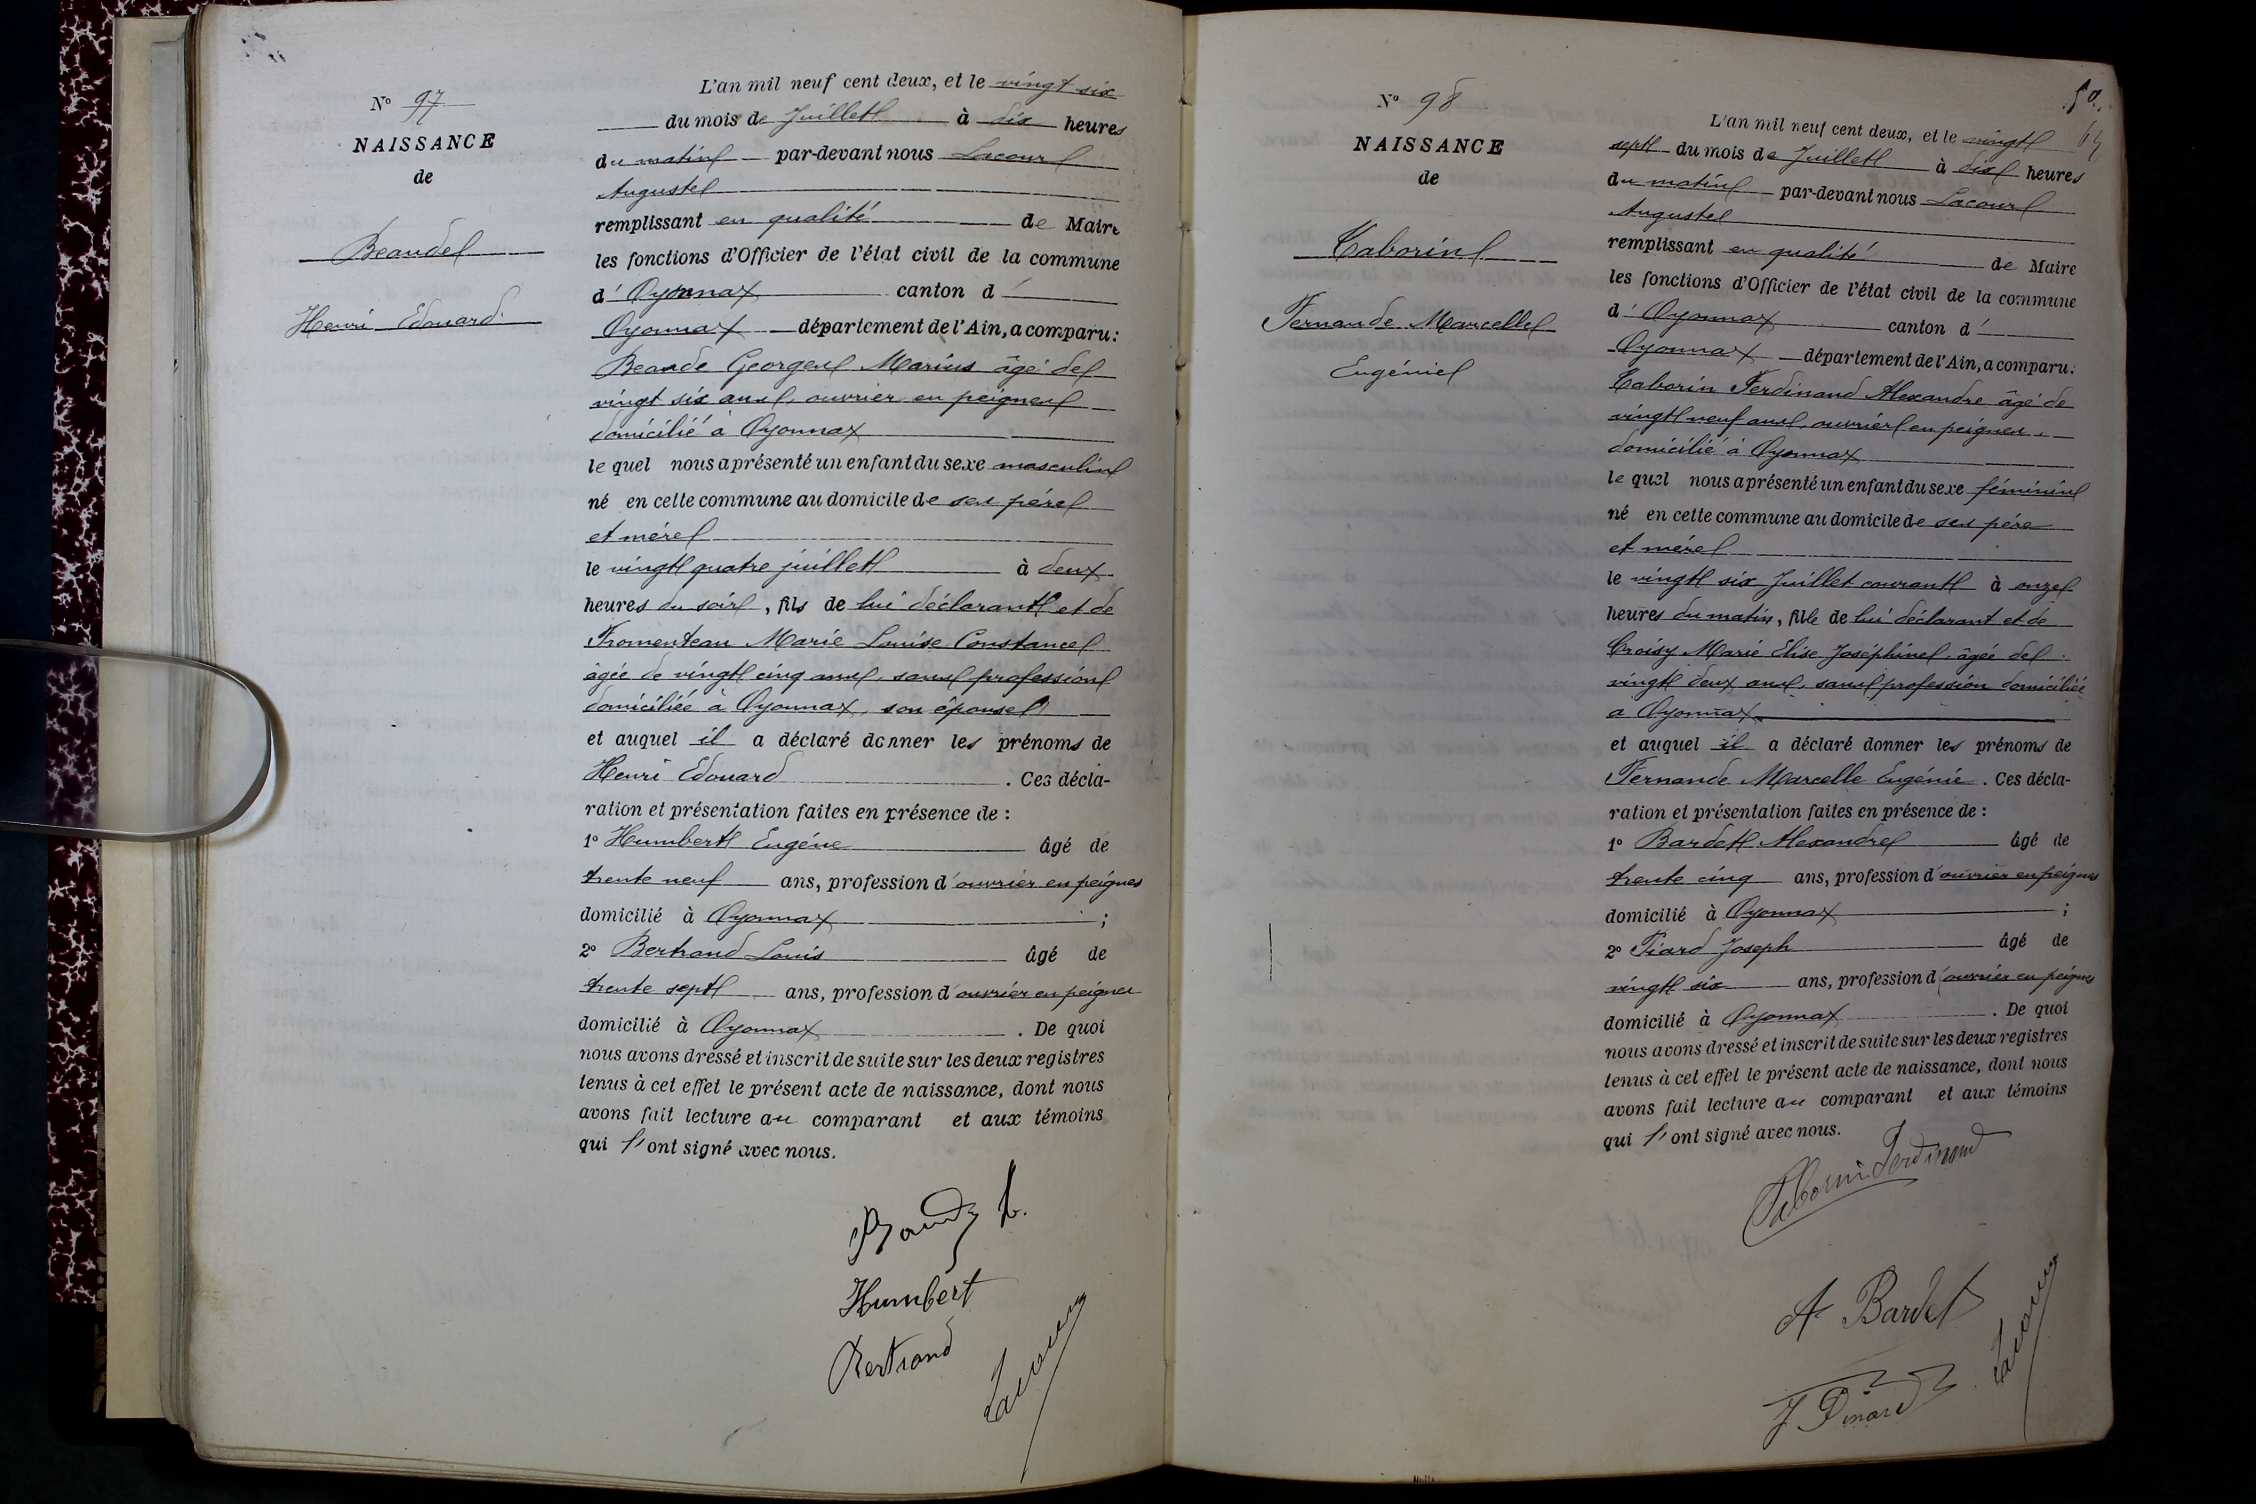 N° 97
NAISSANCE
de
Beaude
Henri Edouard
L'an mil neuf cent deux, et le vingt six
du mois de Juillet à dix heures
du matin par-devant nous Lacour
Auguste
remplissant en qualité de Maire
les fonctions d'Officier de l'état civil de la commune
d'Oyonnax canton d'
Oyonnax département de l'Ain, a comparu :
Beaude Georges Marius âgé de
vingt six ans, ouvrier en peignes
domicilié à Oyonnax
le quel nous a présenté un enfant du sexe masculin
né en cette commune au domicile de ses père
et mère
le vingt quatre juillet à deux
heures du soir, fils de lui déclarant et de
Fromenteau Marie Louise Constance
âgée de vingt cinq ans, sans profession
domiciliée à Oyonnax, son épouse
et auquel il a déclaré donner les prénoms de
Henri Edouard. Ces décla-
ration et présentation faites en présence de :
1° Humbert Eugène âgé de
trente neuf ans, profession d'ouvrier en peignes
domicilié à Oyonnax ;
2° Bertrand Louis âgé de
trente sept ans, profession d'ouvrier en peignes
domicilié à Oyonnax. De quoi
nous avons dressé et inscrit de suite sur les deux registres
tenus à cet effet le présent acte de naissance, dont nous
avons fait lecture au comparant et aux témoins
qui l'ont signé avec nous.
Humbert
Bertrand
Lacour
50
64
N° 98
NAISSANCE
de
Taborin
Fernande Marcelle
Eugénie
L'an mil neuf cent deux, et le vingt
sept du mois de Juillet à dix heures
du matin par-devant nous Lacour
Auguste
remplissant en qualité de Maire
les fonctions d'Officier de l'état civil de la commune
d'Oyonnax canton d'
Oyonnax département de l'Ain, a comparu :
Taborin Ferdinand Alexandre âgé de
vingt neuf ans, ouvrier en peignes,
domicilié à Oyonnax
le quel nous a présenté un enfant du sexe féminin
né en cette commune au domicile de ses père
et mère
le vingt six Juillet courant à onze
heures du matin, fille de lui déclarant et de
Croisy Marie Elise Joséphine, âgée de
vingt deux ans, sans profession domiciliée
a Oyonnax
et auquel il a déclaré donner les prénoms de
Fernande Marcelle Eugénie. Ces décla-
ration et présentation faites en présence de :
1° Bardet Alexandre âgé de
trente cinq ans, profession d'ouvrier en peignes
domicilié à Oyonnax ;
2° Piard Joseph âgé de
vingt six ans, profession d'ouvrier en peignes
domicilié à Oyonnax. De quoi
nous avons dressé et inscrit de suite sur les deux registres
tenus à cet effet le présent acte de naissance, dont nous
avons fait lecture au comparant et aux témoins
qui l'ont signé avec nous.
Taborin Ferdinand
A Bardet
Lacour